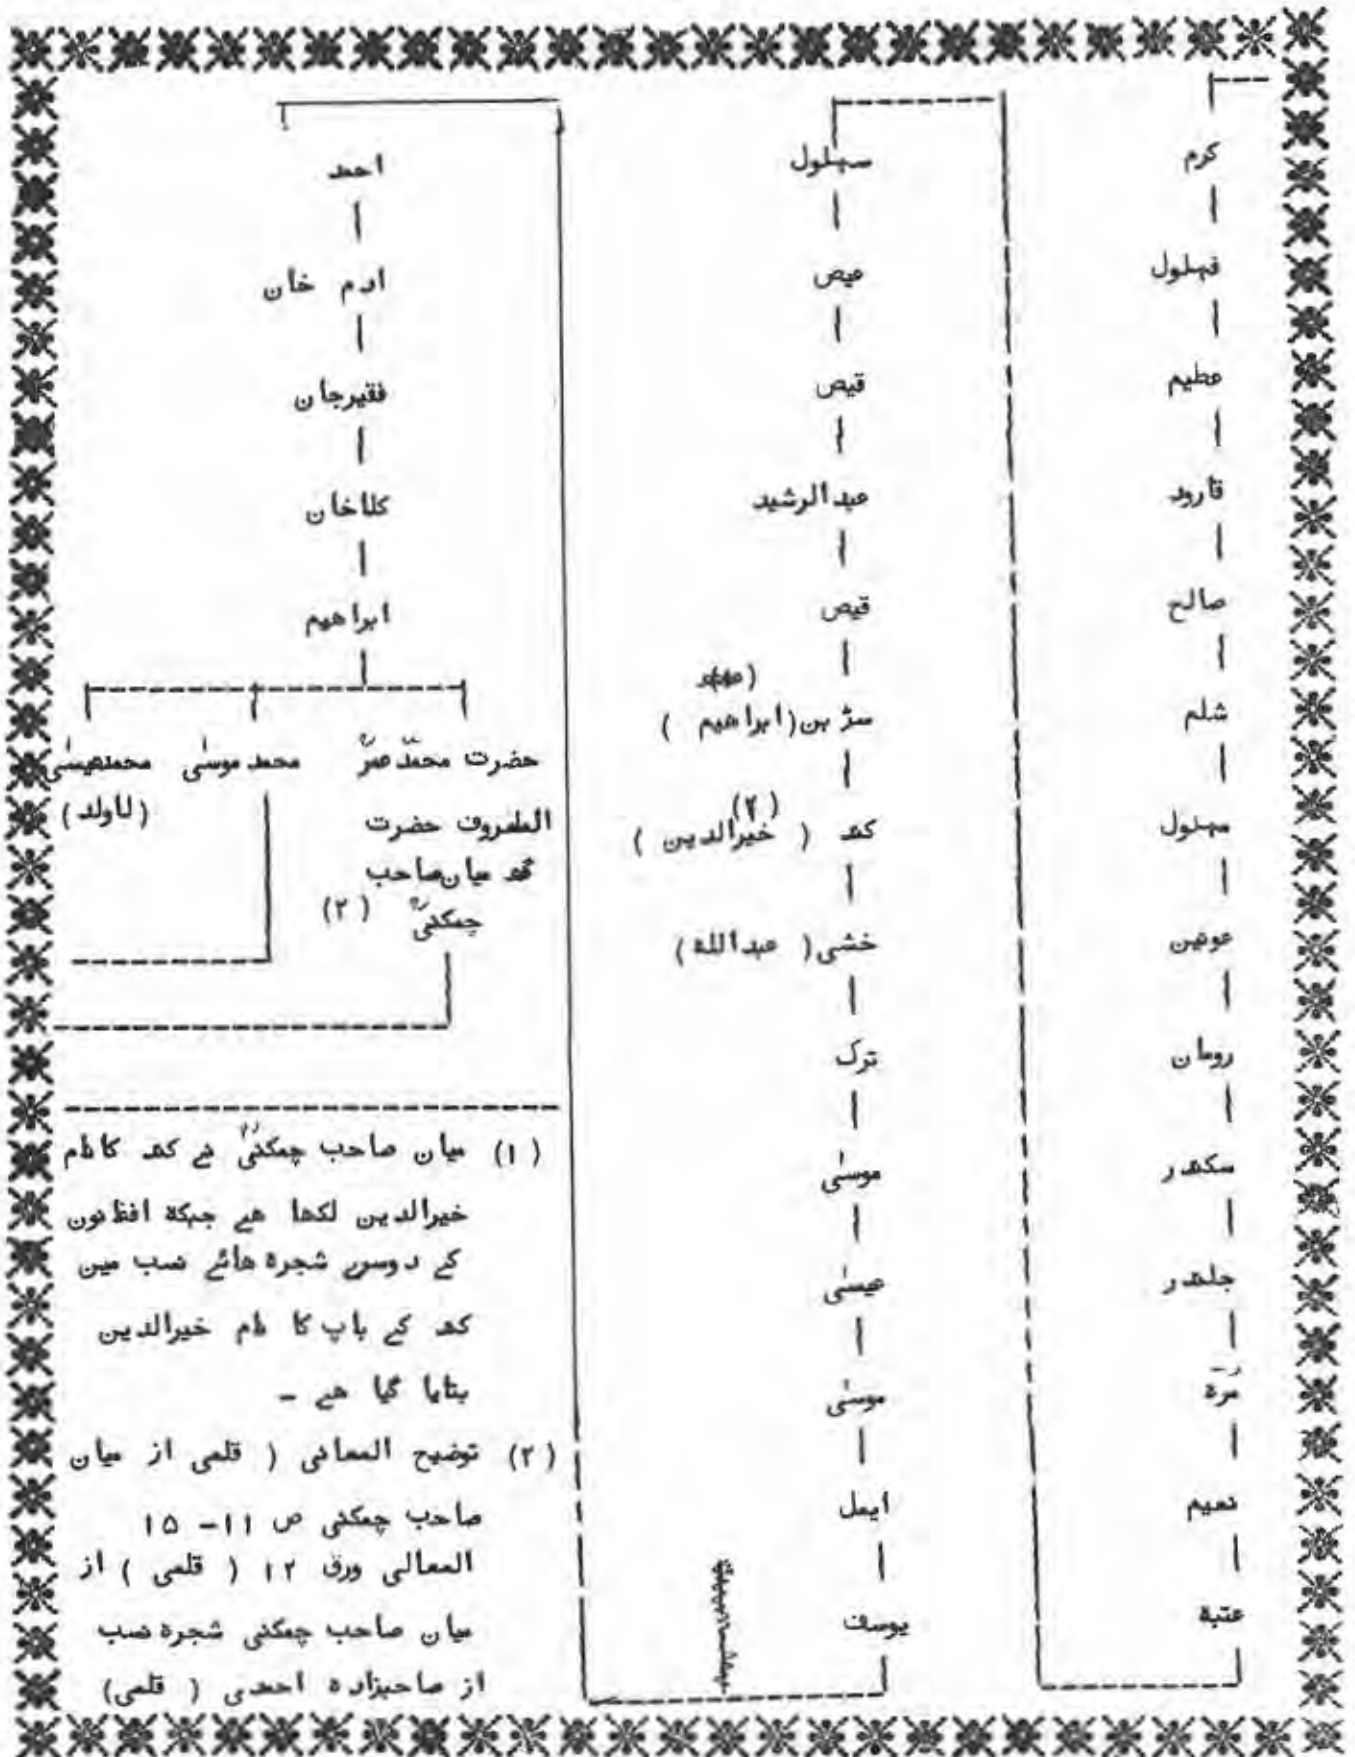 کرم
فہلول
عطیم
قارود
صالح
شلم
مہلول
عوفین
رومان
سکندر
جلندر
مرّہ
نعیم
عتبہ
سہلول
عیص
قیص
عبدالرشید
قیص
سڑ بن (ابراھیم)
(۲)
کند ( خیرالدین )
خشی ( عبداللہ )
ترک
موسیٰ
عیسیٰ
موسیٰ
ایمل
یوسف
احمد
ادم خان
فقیرجان
کلاخان
ابراھیم
حضرت محمّد عمرؒ
المعروف حضرت
میان صاحب
چمکنیؒ (۲)
محمد موسیٰ
محمدعیسیٰ
(لاولد)
(۱) میان صاحب چمکنیؒ نے کند کا نام
خیرالدین لکھا ھے جبکہ افغانون
کے دوسرے شجرہ ھائے نسب مین
کند کے باپ کا نام خیرالدین
بتایا گیا ھے ۔
(۲) توضیح المعانی ( قلمی از میان
صاحب چمکنی ص ۱۱ - ۱۵
المعالی ورق ۱۲ ( قلمی ) از
میان صاحب چمکنی شجرہ نسب
از صاحبزادہ احمدی ( قلمی)